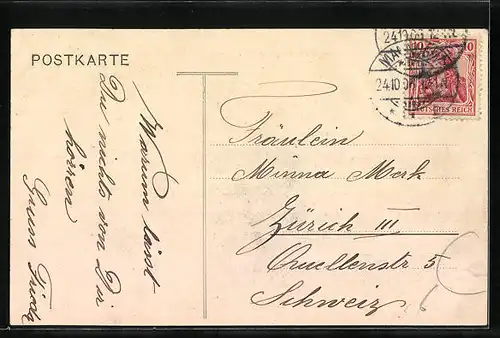 POSTKARTE
Warum lässt
Du nichts von Dir
hören
Gruss
Fräulein
Minna Merk
Zürich III
Quellenstr 5
Schweiz
24.10.06
10
DEUTSCHES REICH